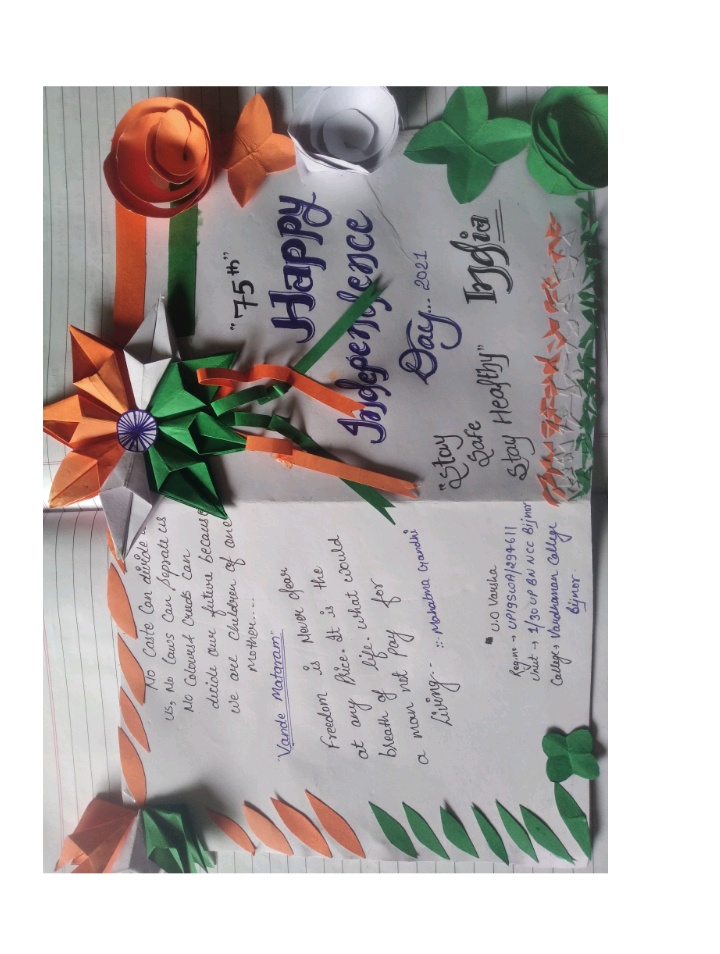 "75th"
Happy
Independence
Day... 2021
India
"Stay
Safe
Stay Healthy"
No Caste Can divide
us, No laws Can Seprate us
No Colours Can
decide our future because
we are children of one
mother....
"Vande Mataram"
Freedom is Never dear
at any Price. It is the
breath of life. What would
a man not pay for
living.-
::- Mahatma Gandhi
U.O Varsha
Reg.no → UP19SWA/294611
Unit → 1/30 UP BN NCC Bijnor
College → Vardhaman College
Bijnor.